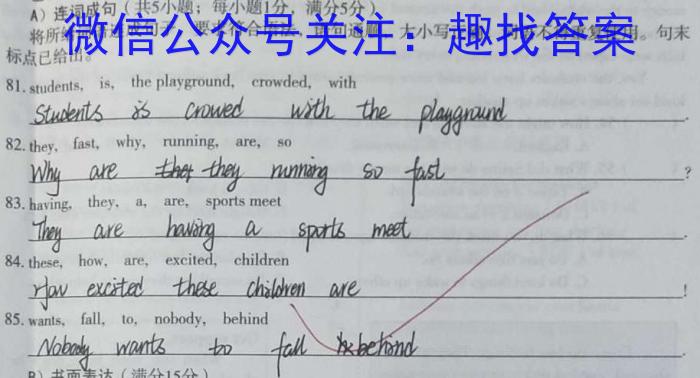 A）连词成句（共5小题；每小题1分，满分5分）
微信公众号关注：趣找答案
句末
标点已给出。
81. students, is, the playground, crowded, with
Students is crowed with the playground.
82. they, fast, why, running, are, so
Why are they running so fast?
83. having, they, a, are, sports meet
They are having a sports meet.
84. these, how, are, excited, children
How excited these children are!
85. wants, fall, to, nobody, behind
Nobody wants to fall behind.
B）书面表达（满分15分）